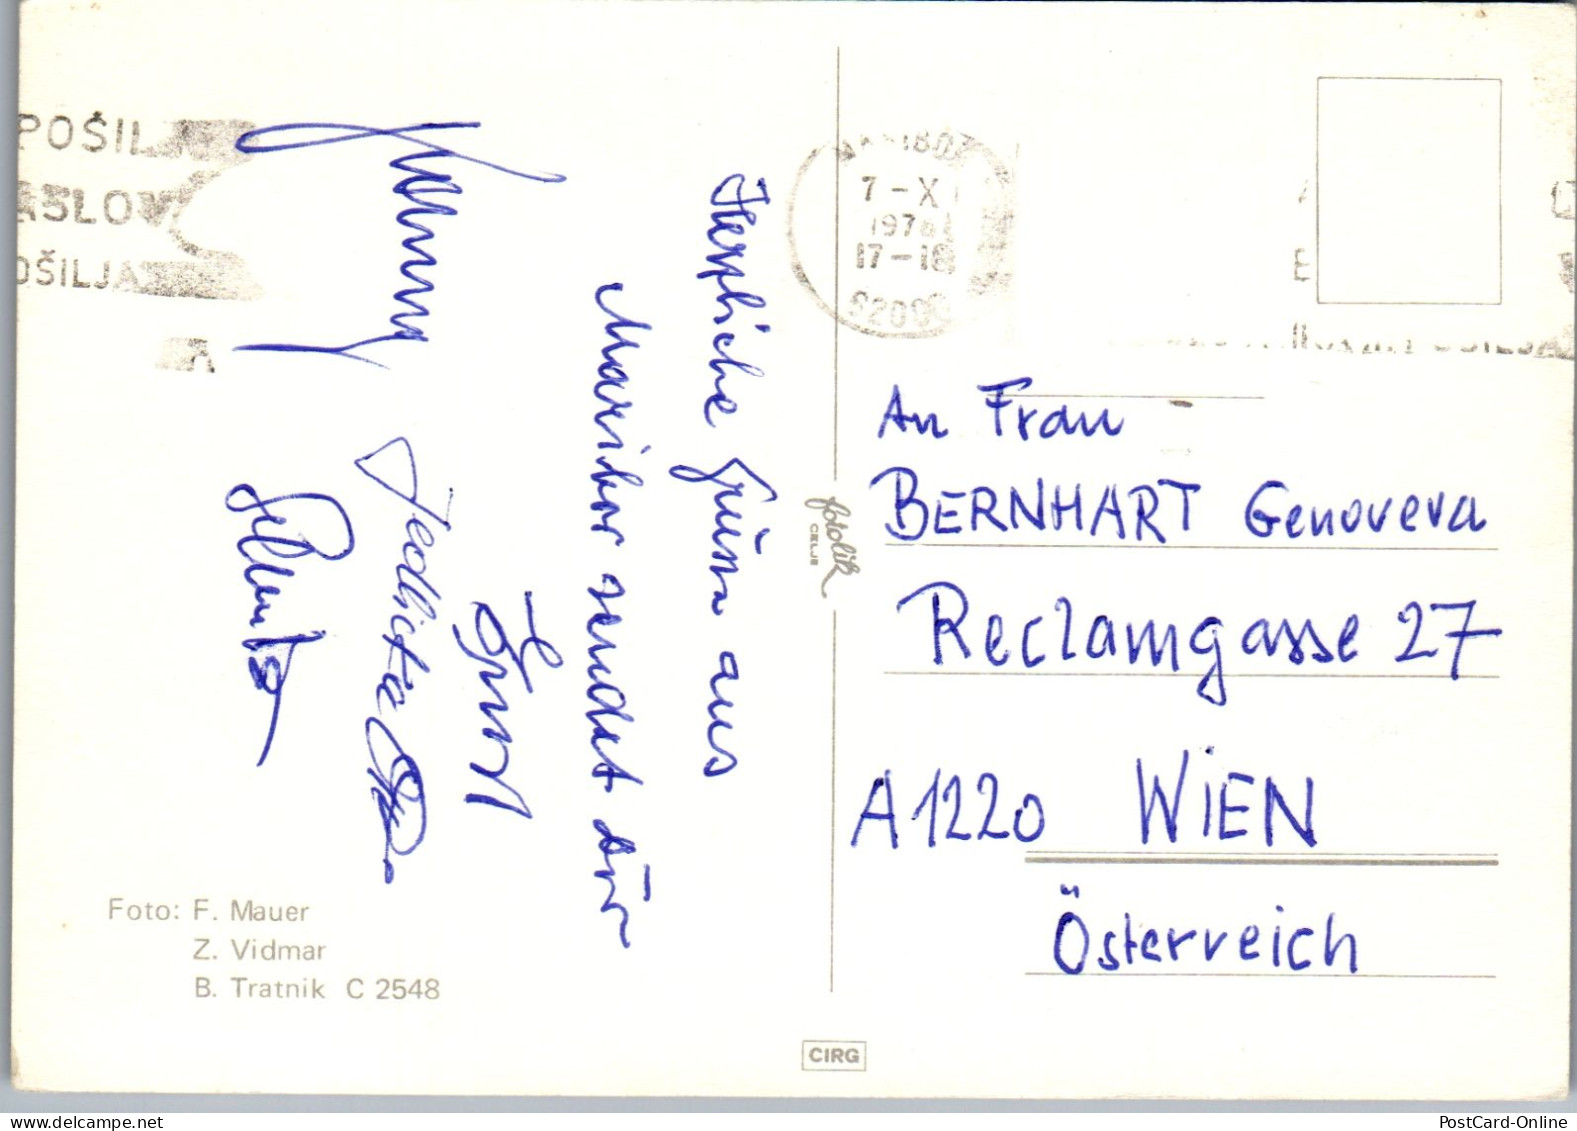 POŠIL
ASLOV
OŠILJA
A
7-X
197
17-18
6200
Herzliche Grüsse aus
Maribor sendet dir
Ernst
Jedlicka
An Frau
BERNHART Genoveva
Reclamgasse 27
A 1220 WIEN
Österreich
fotolik
CELJE
Foto: F. Mauer
Z. Vidmar
B. Tratnik C 2548
CIRG
www.delcampe.net
PostCard-Online